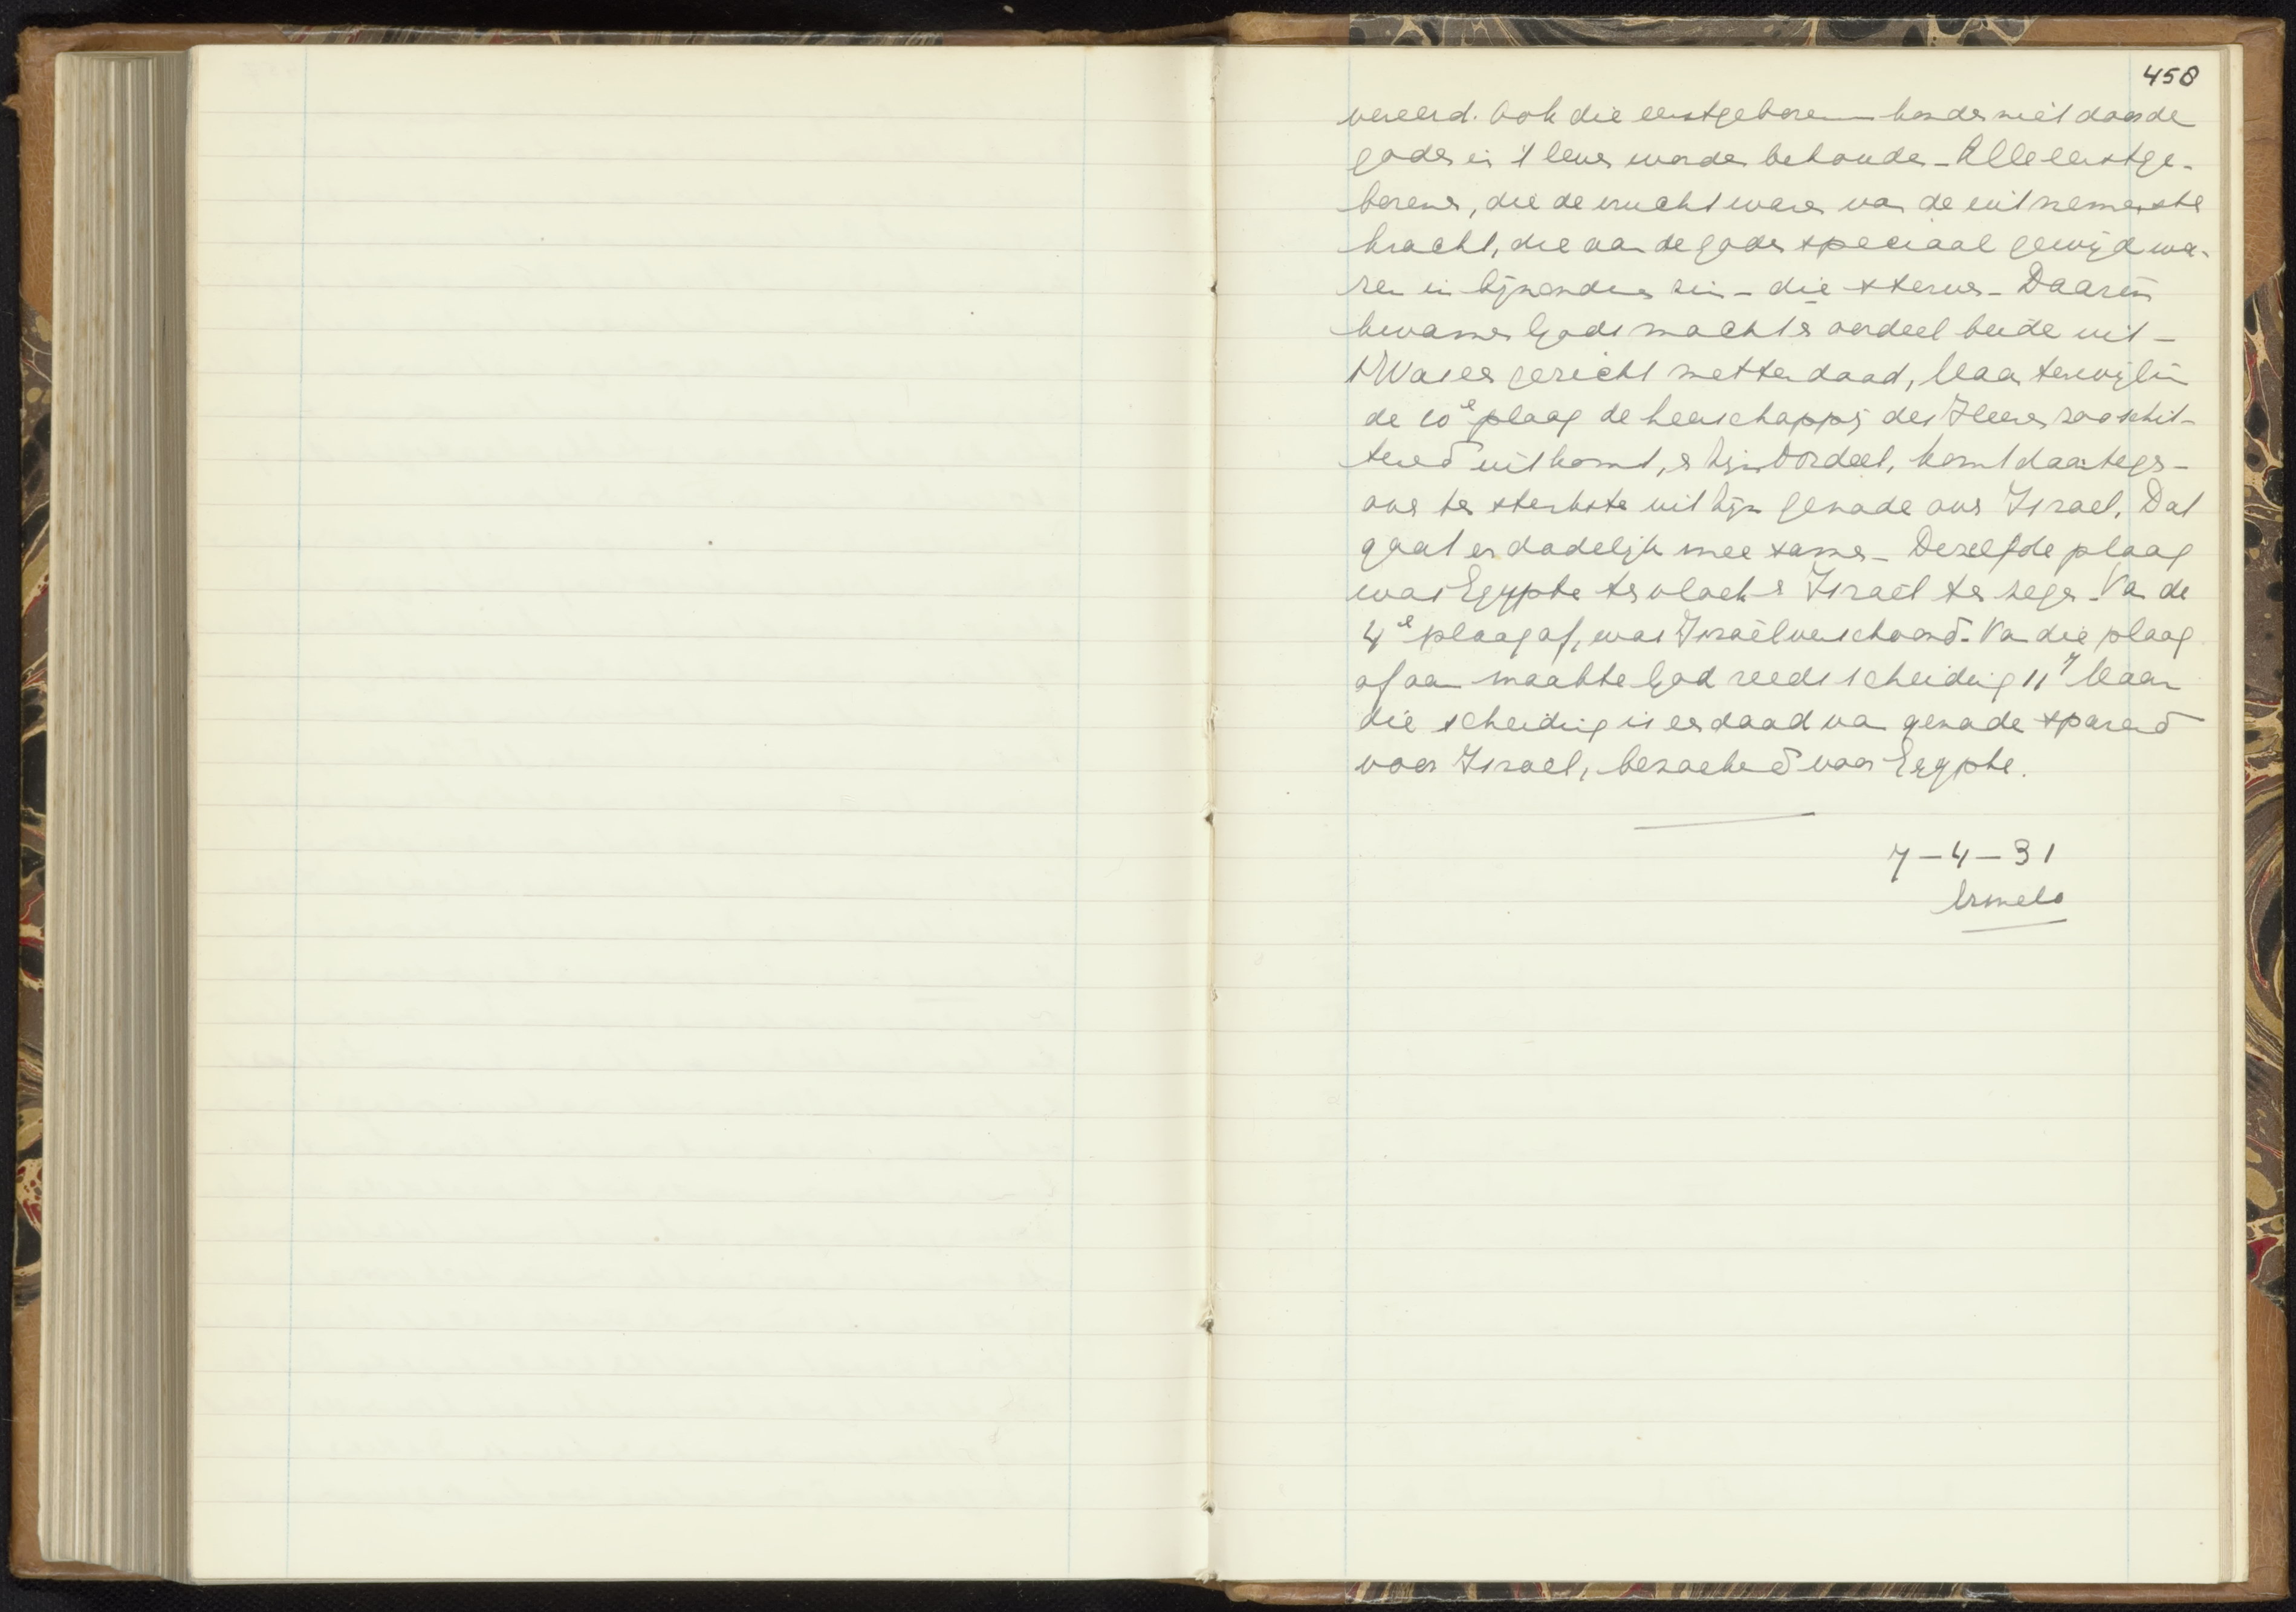 458
vereerd. Ook die eerstgeborenen konden niet door de
goden in 't leven worden behouden - Alle eerstge-
borenen, die de vrucht waren van de uitnemendste
kracht, die aan de goden speciaal gewijd wa-
ren in bijzonderen zin - die sterven - Daarin
kwamen Gods macht en oordeel beide uit -
't Was een gericht metterdaad, Maar terwijl in
de 10e plaag de heerschappij des Heeren zoo schit-
terend uitkomt, en Zijn Oordeel, komt daartegen-
over ten sterkste uit Zijn genade over Israel. Dat
gaat er dadelijk mee samen - Dezelfde plaag
was Egypte ten vloek en Israël ten zegen - Van de
4e plaag af, was Israël verschoond. Van die plaag
af aan maakte God reeds scheiding 11 7 Maar
die scheiding is een daad van genade sparend
voor Israel, bezoekend voor Egypte.
7-4-31
Ermelo